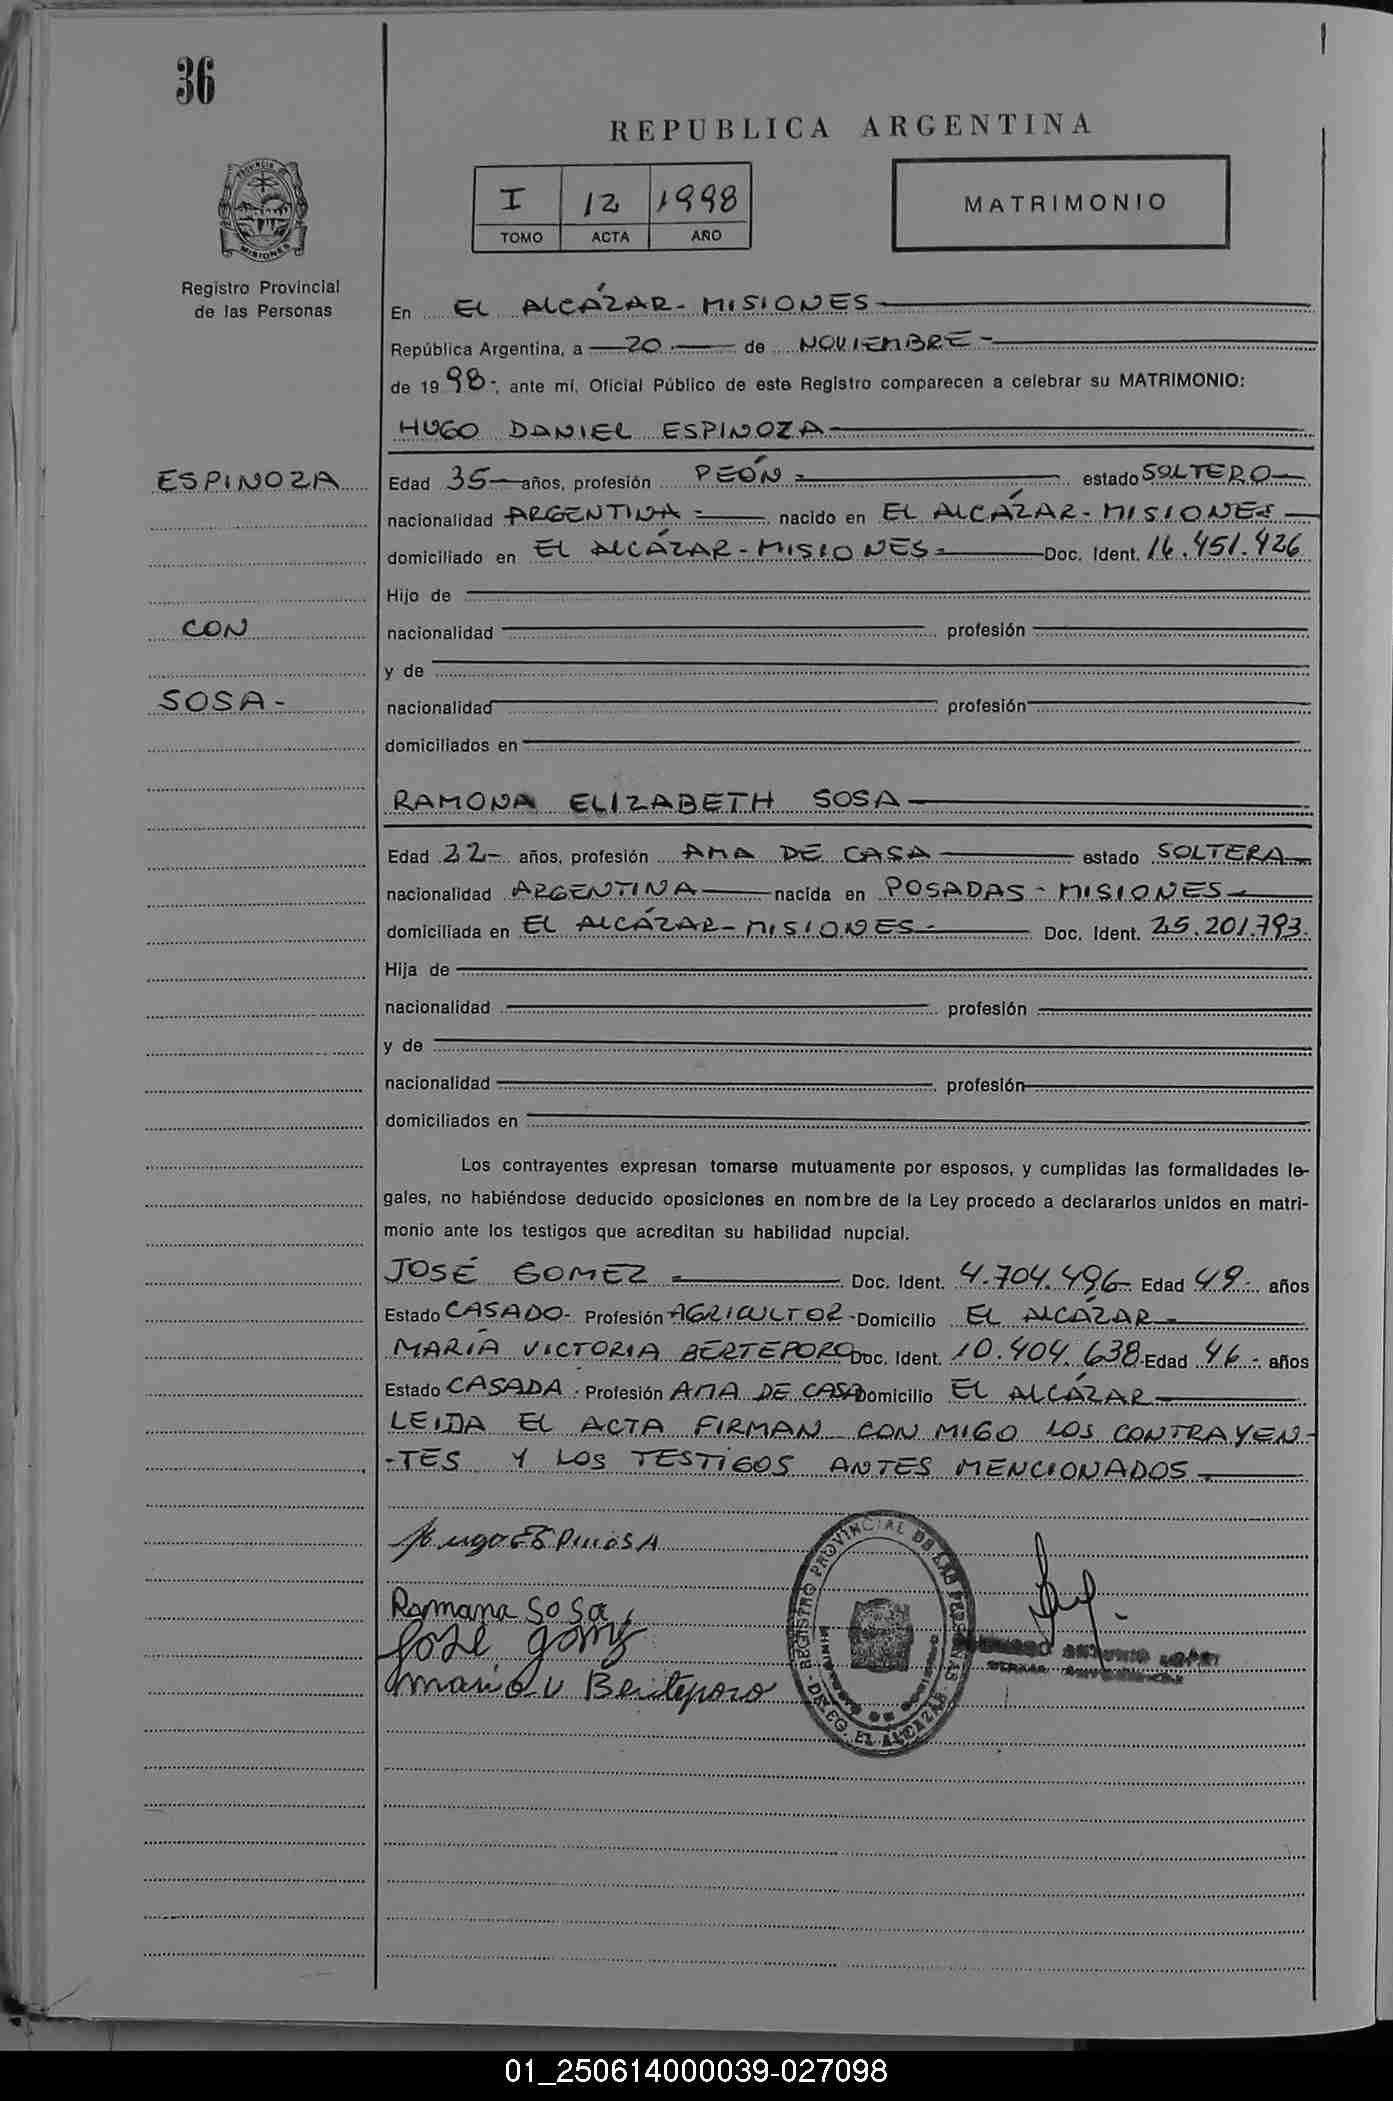 36
REPUBLICA ARGENTINA
I 12 1998
TOMO ACTA AÑO
MATRIMONIO
PROVINCIA DE
MISIONES
Registro Provincial
de las Personas
En EL ALCÁZAR - MISIONES
República Argentina, a 20 de NOVIEMBRE -
de 19 98-, ante mí, Oficial Público de este Registro comparecen a celebrar su MATRIMONIO:
HUGO DANIEL ESPINOZA
ESPINOZA
Edad 35 años, profesión PEÓN - estado SOLTERO
nacionalidad ARGENTINA - nacido en EL ALCÁZAR - MISIONES
domiciliado en EL ALCÁZAR - MISIONES - Doc. Ident. 16.451.426
Hijo de
CON
nacionalidad profesión
y de
SOSA -
nacionalidad profesión
domiciliados en
RAMONA ELIZABETH SOSA
Edad 22 - años, profesión AMA DE CASA estado SOLTERA
nacionalidad ARGENTINA nacida en POSADAS - MISIONES
domiciliada en EL ALCÁZAR - MISIONES - Doc. Ident. 25.201.793.
Hija de
nacionalidad profesión
y de
nacionalidad profesión
domiciliados en
Los contrayentes expresan tomarse mutuamente por esposos, y cumplidas las formalidades le-
gales, no habiéndose deducido oposiciones en nombre de la Ley procedo a declararlos unidos en matri-
monio ante los testigos que acreditan su habilidad nupcial.
JOSÉ GOMEZ Doc. Ident. 4.704.496 - Edad 49 - años
Estado CASADO - Profesión AGRICULTOR - Domicilio EL ALCÁZAR
MARÍA VICTORIA BERTEPORO Doc. Ident. 10.404.638 - Edad 46 - años
Estado CASADA - Profesión AMA DE CASA Domicilio EL ALCÁZAR
LEIDA EL ACTA FIRMAN CON MIGO LOS CONTRAYEN-
-TES Y LOS TESTIGOS ANTES MENCIONADOS
Hugo ESPinoSA
Ramona Sosa
José gomz
maria v Berteporo
REGISTRO PROVINCIAL DE LAS PERSONAS
DELEG. EL ALCAZAR
ANTONIO
01_250614000039-027098